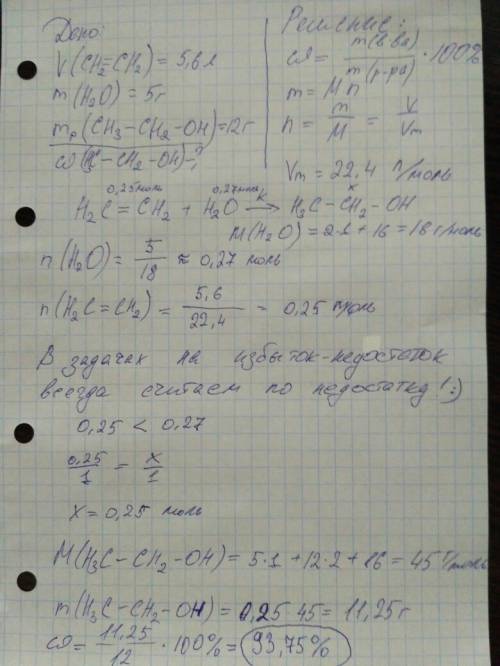 Дано:
V(CH₂=CH₂) = 5,6 л
m(H₂O) = 5 г
mₚ(CH₃–CH₂–OH) = 12 г
ω( –CH₂–OH) – ?
Решение:
ω = m(в-ва) / m(р-ра) · 100%
m = M n
n = m/M = V/Vm
Vm = 22,4 л/моль
0,25 моль 0,27 моль x
H₂C = CH₂ + H₂O →ᴷ H₃C – CH₂ – OH
M(H₂O) = 2·1 + 16 = 18 г/моль
n(H₂O) = 5/18 ≈ 0,27 моль
n(H₂C=CH₂) = 5,6/22,4 = 0,25 моль
В задачах на избыток-недостаток
всегда считаем по недостатку! :)
0,25 < 0,27
0,25/1 = x/1
x = 0,25 моль
M(H₃C–CH₂–OH) = 5·1 + 12·2 + 16 = 45 г/моль
m(H₃C–CH₂–OH) = 0,25 45 = 11,25 г
ω = 11,25/12 · 100% = 93,75%